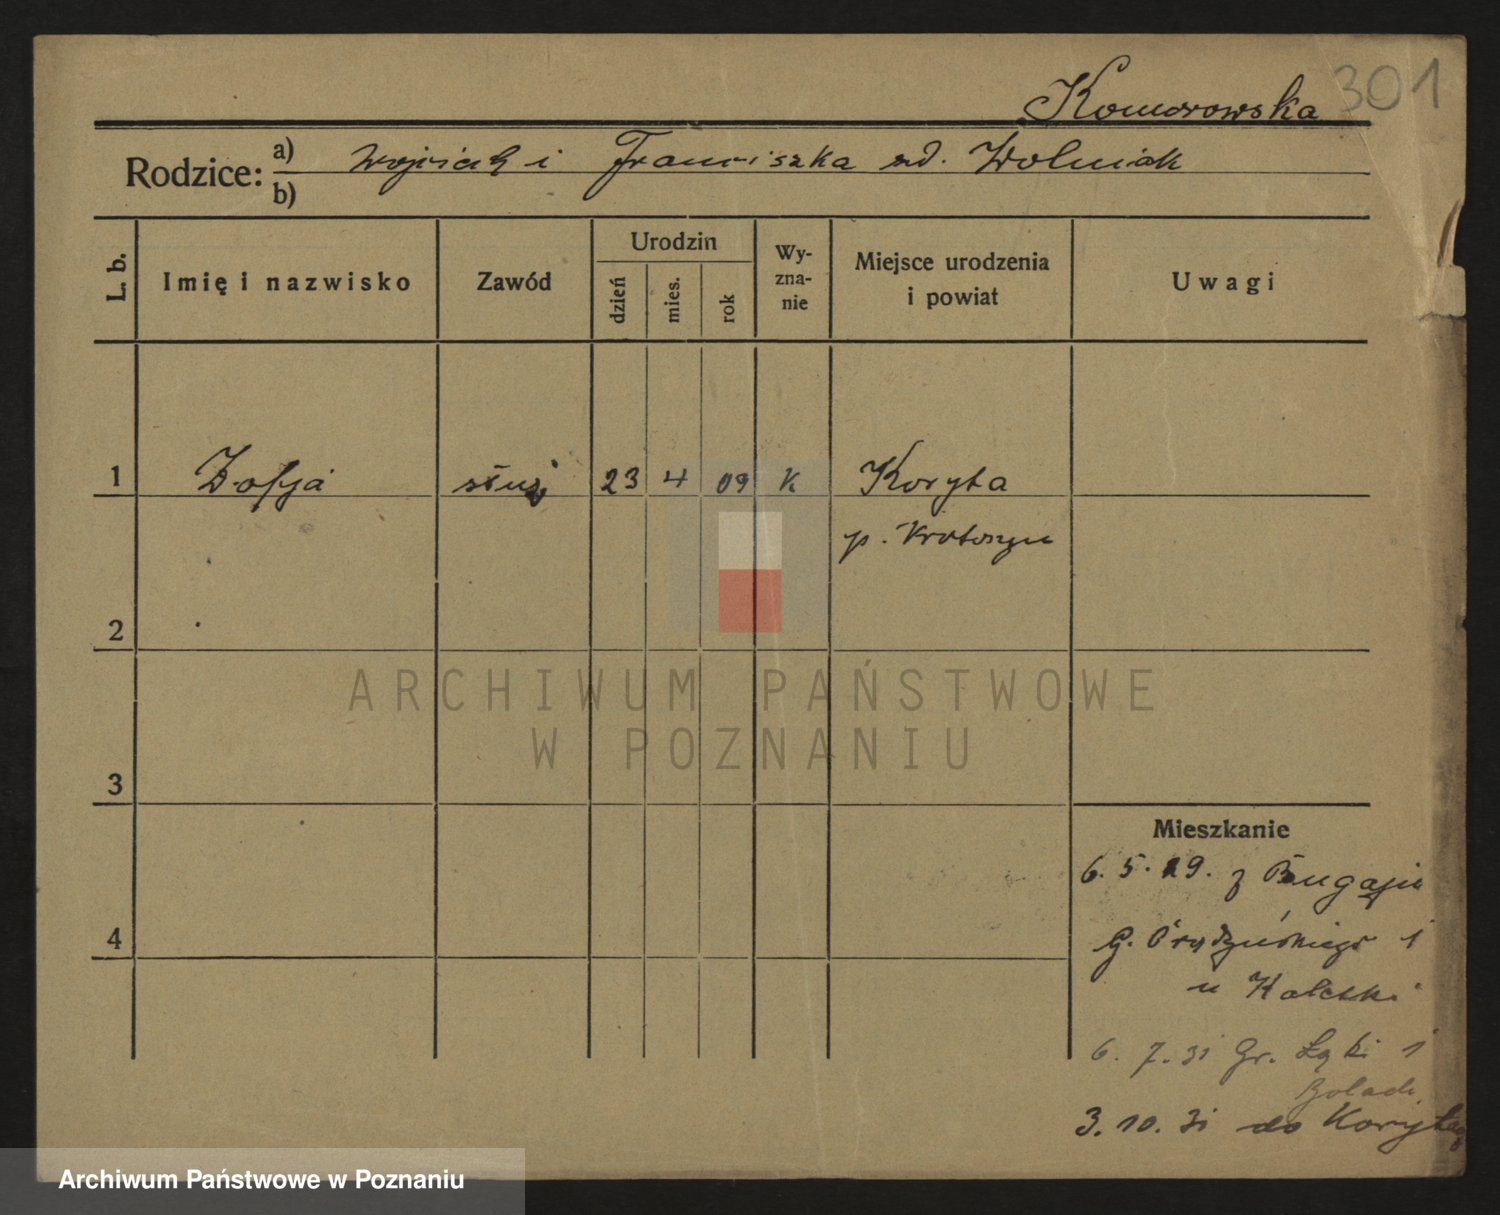 301
Komorowska
Rodzice: a) Wojciech i Franciszka zd. Wolniak
b)
L. b.
Imię i nazwisko
Zawód
Urodzin
dzień
mies.
rok
Wy-
zna-
nie
Miejsce urodzenia
i powiat
Uwagi
1 Zofja służ 23 4 09 K Koryta
p. Krotoszyn
2
3
4
ARCHIWUM PAŃSTWOWE
W POZNANIU
Mieszkanie
6. 5. 29. z Bugaju
G. Prądzyńskiego 1
u Kaletki
6. 7. 31 Gr. Łąki 1
3. 10. 31 do Koryta
Archiwum Państwowe w Poznaniu